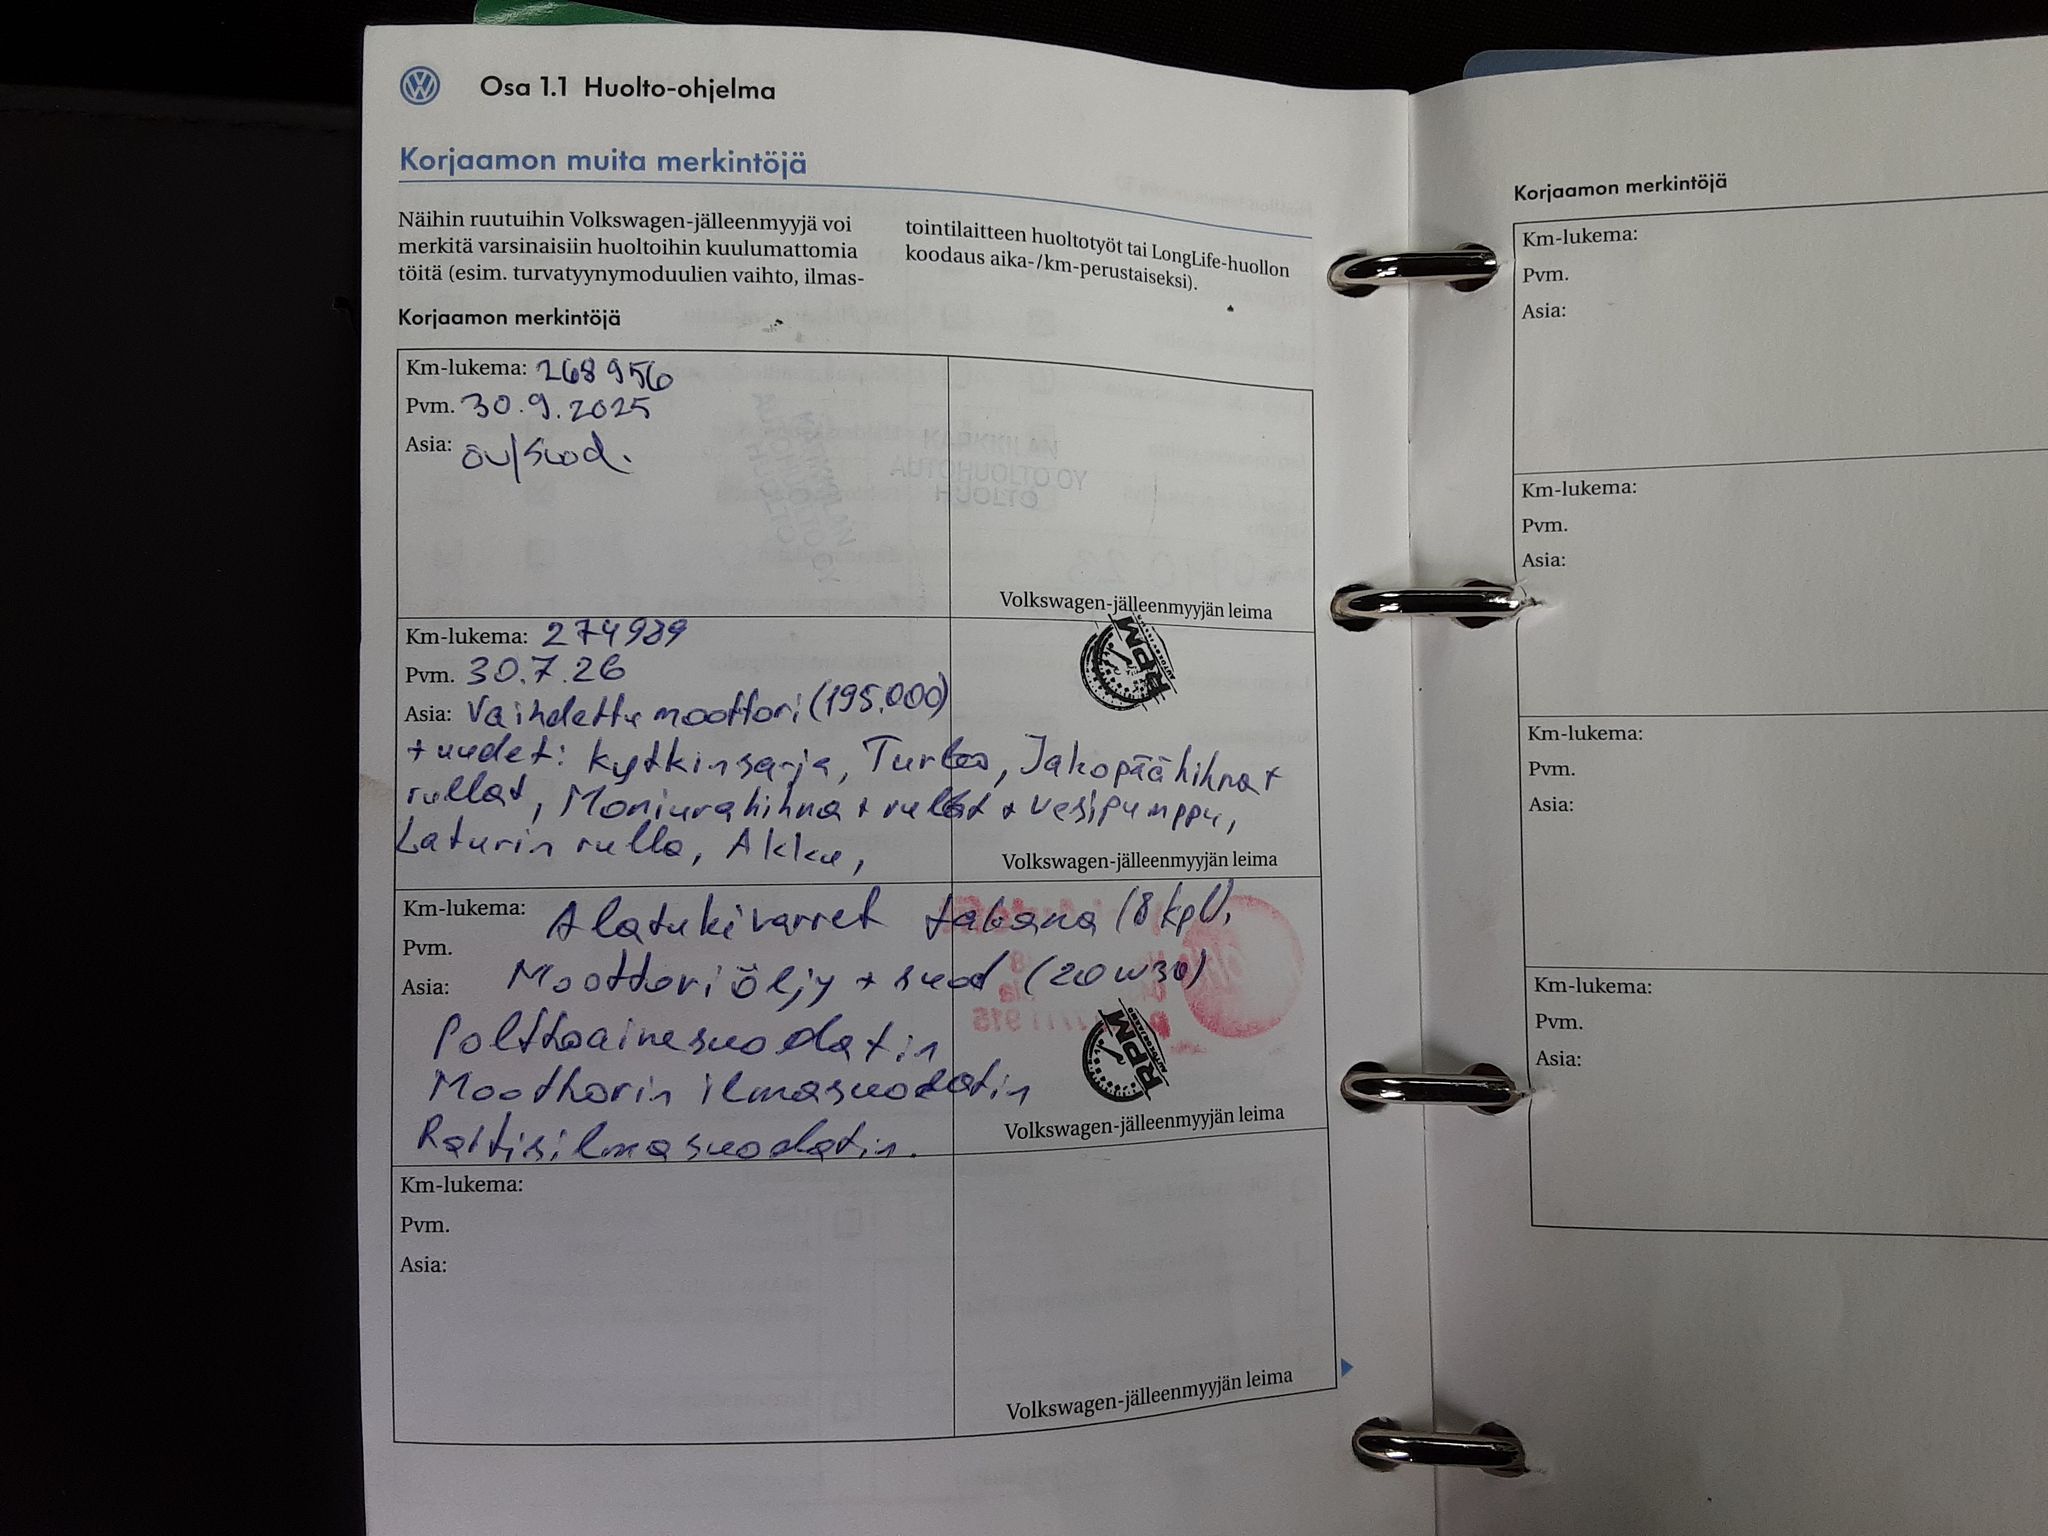 Osa 1.1 Huolto-ohjelma
Korjaamon muita merkintöjä
Näihin ruutuihin Volkswagen-jälleenmyyjä voi
merkitä varsinaisiin huoltoihin kuulumattomia
töitä (esim. turvatyynymoduulien vaihto, ilmas-
tointilaitteen huoltotyöt tai LongLife-huollon
koodaus aika-/km-perustaiseksi).
Korjaamon merkintöjä
Km-lukema: 268956
Pvm. 30.9.2025
Asia: öv/suod.
Volkswagen-jälleenmyyjän leima
Km-lukema: 274989
Pvm. 30.7.26
Asia: Vaihdettu moottori (195.000)
+ uudet: kytkinsarja, Turbo, Jakopäähihna +
rullat, Moniurahihna + rullat + vesipumppu,
Laturin rulla, Akku,
RPM
Volkswagen-jälleenmyyjän leima
Km-lukema: Alatukivarret takana (8kpl),
Pvm.
Asia: Moottoriöljy + suod (20w30)
Polttoainesuodatin
Moottorin ilmasuodatin
Raitisilmasuodatin.
RPM
AUTOKORJAAMO
Volkswagen-jälleenmyyjän leima
Km-lukema:
Pvm.
Asia:
Volkswagen-jälleenmyyjän leima
Korjaamon merkintöjä
Km-lukema:
Pvm.
Asia:
Km-lukema:
Pvm.
Asia:
Km-lukema:
Pvm.
Asia:
Km-lukema:
Pvm.
Asia: